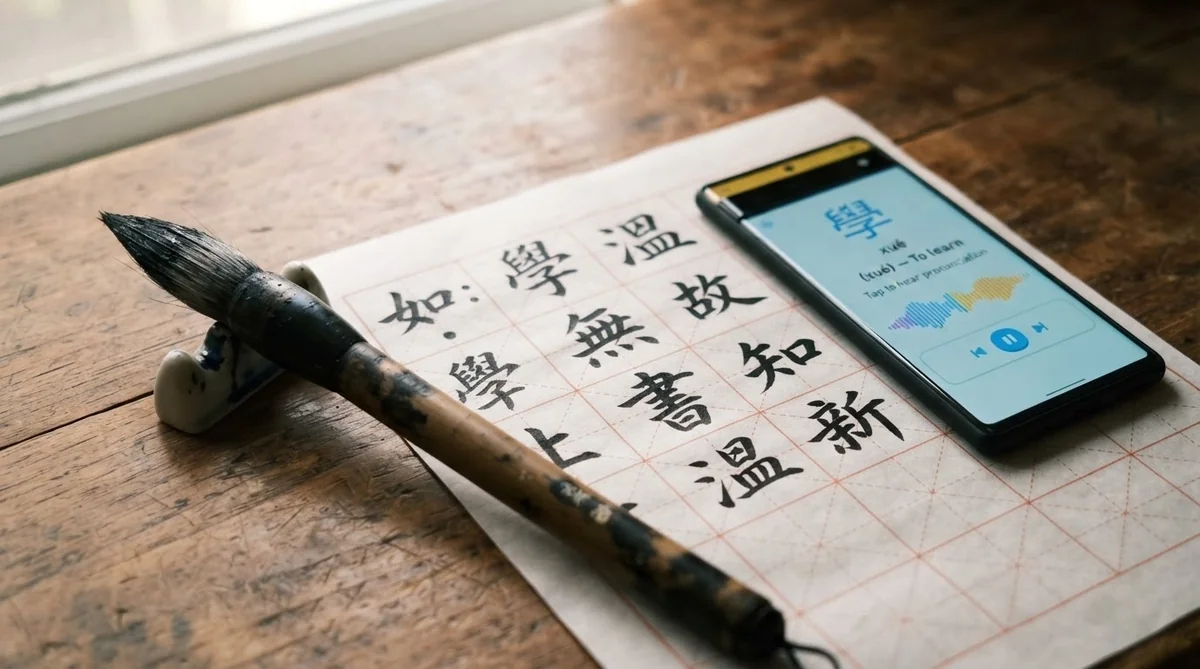 温故知新
學無書温
如：學上
學
xué
(xué) – To learn
Tap to hear